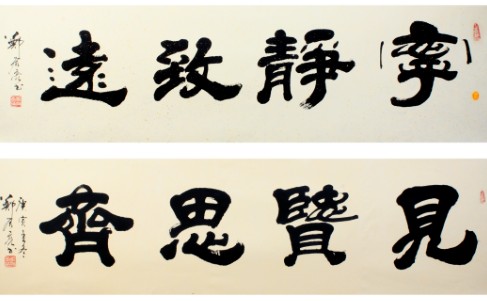 寧靜致遠
見賢思齊
庚寅